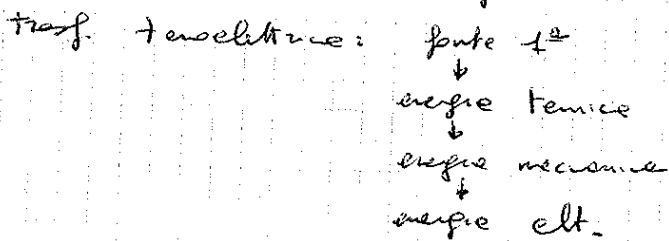 trasf. termoelettrica: fonte 1ª
↓
energia termica
↓
energia meccanica
↓
energia elt.